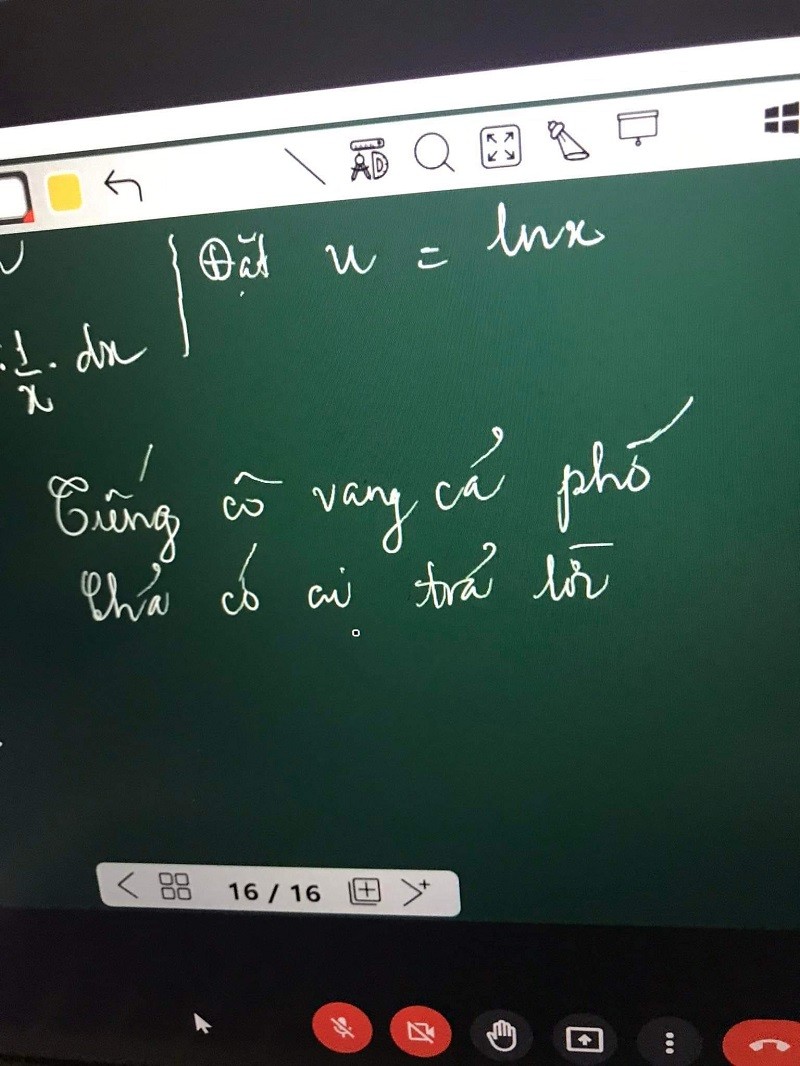 Đặt u = lnx
1/x . dx
Tiếng cô vang cả phố
Chả có ai trả lời
16 / 16